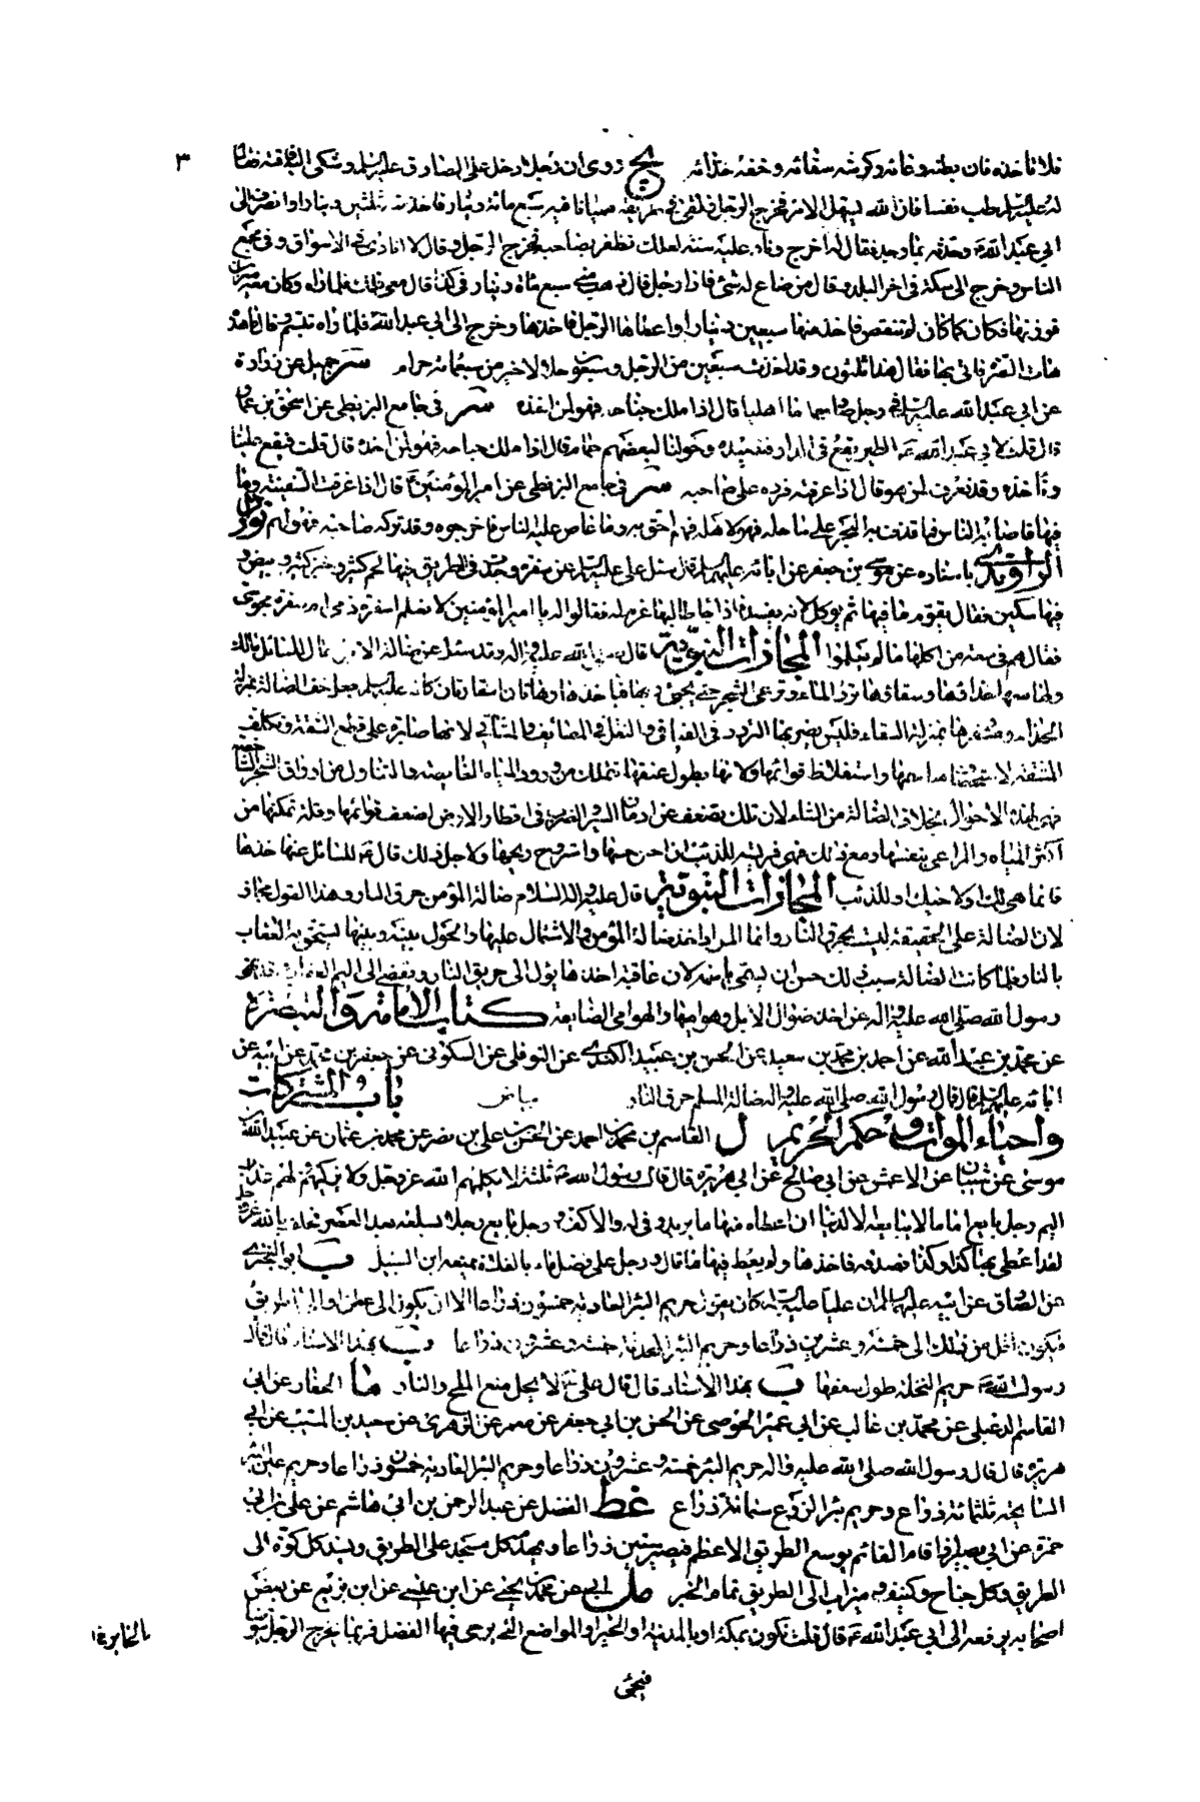 ٣
فلا تأخذه فان بطنه وعائه وكرشه سقائه وخفه حذائه يج روى ان رجلا دخل على الصادق عليه السلم وشكى اليه فاقته فقال
له عليه السلم طب نفسا فان الله يسهل الامر فخرج الرجل فلقى في طريقه هميانا فيه سبع مائة دينار فاخذ منه ثلثين دينارا وانصرف الى
ابي عبد الله ع وحدثه بما وجد فقال له اخرج وناد عليه سنة لعلك تظفر بصاحبه فخرج الرجل وقال لا انادى في الاسواق وفي مجمع
الناس وخرج الى سكة في اخر البلد وقال من ضاع له شئ فاذا رجل قال ذهب مني سبع مائة دينار في كذا قال معي ذلك فلما راه وكان معه ميزان
فوزنها فكان كما كان لم تنقص فاخذ منها سبعين دينارا واعطاها الرجل فاخذها وخرج الى ابي عبد الله فلما راه تبسم وقال ما هذه
هات الصرة فاتى بها فقال هذا ثلثون وقد اخذت سبعين من الرجل وسبعون حلالا خير من سبعمائة حرام سر جميل عن زرارة
عن ابي عبد الله عليه السلم في رجل صاد حماما اهليا قال اذا ملك جناحه فهو لمن اخذه سر في جامع البزنطي عن اسحق بن عمار
قال قلت لابي عبد الله ع الطير يقع في الدار فنصيده وحولنا لبعضهم حمام قال اذا ملك جناحه فهو لمن اخذه قال قلت فيقع علينا
ونأخذه وقد نعرف لمن هو قال اذا عرفته فرده على صاحبه سر في جامع البزنطي عن امير المؤمنين ع قال اذا غرقت السفينة وما
فيها فاصابه الناس فما قذف به البحر على ساحله فهو لاهله فهم احق به وما غاص عليه الناس فاخرجوه وقد تركه صاحبه فهو لهم نوادر
الراوندي باسناده عن موسى بن جعفر عن ابائه عليهم السلم قال سئل علي عليه السلم عن سفرة وجدت في الطريق فيها لحم كثير وخبز كثير وبيض و
فيها سكين فقال يقوم ما فيها ثم يؤكل لانه يفسد فاذا جاء طالبها غرم له فقالوا له يا امير المؤمنين لا نعلم اسفرة ذمي ام سفرة مجوسي
فقال هم في سعة من اكلها ما لم يعلموا المجازات النبوية قال صلى الله عليه واله وقد سئل عن ضالة الابل فقال للسائل مالك
ولها معها حذاؤها وسقاؤها ترد الماء وترعى الشجر حتى يجئ ربها فيأخذها وهاتان استعارتان كانه عليه السلم جعل خف الضالة بمنزلة
الحذاء ومشفرها بمنزلة السقاء فليس يضر بها التردد في الفيافي والتنقل في المصائف والمشاتي لانها صابرة على قطع الشقة وتكلف
المشقة لاستحكام مناسمها واستغلاظ قوائمها ولانها بطول عنقها تتمكن من ورود المياه الغامضة والتناول من اوراق الشجر الشاخصة
فهي لهذه الاحوال بخلاف الضالة من الشاء لان تلك تضعف عن ادمان السير والضرب في اقطار الارض لضعف قوائمها وقلة تمكنها من
اكثر المياه والمراعي بنفسها ومع ذلك فهي فريسة للذئب ان احس حسها واستروح ريحها ولاجل ذلك قال ع للسائل عنها خذها
فانما هي لك او لاخيك او للذئب المجازات النبوية قال عليه واله السلام ضالة المؤمن حرق النار وهذا القول مجاز
لان الضالة على الحقيقة ليست بحرق النار وانما المراد اخذ ضالة المؤمن والاشتمال عليها والحول بينه وبينها يستحق به العقاب
بالنار فلما كانت الضالة سبب ذلك حسن ان تسمى باسمه لان عاقبة اخذها يؤل الى حريق النار ويفضي الى اليم العذاب وقد نهى
رسول الله صلى الله عليه واله عن اخذ ضوال الابل وهواميها والهوامي الضايعة كتاب الامامة والتبصرة
عن محمد بن عبد الله عن احمد بن محمد بن سعيد عن الحسن بن عبيد الكندي عن النوفلي عن السكوني عن جعفر بن محمد عن ابيه عن
ابائه عليهم السلم قال قال رسول الله صلى الله عليه واله ضالة المسلم حرق النار بياض باب المشتركات
واحياء الموات وحكم الحريم ل القاسم بن محمد بن احمد عن الحسن بن علي بن نصر عن محمد بن عثمان عن عبيد الله بن
موسى عن شيبان عن الاعمش عن ابي صالح عن ابي هريرة قال قال رسول الله ص ثلثة لا يكلمهم الله عز وجل ولا يزكيهم لهم عذاب
اليم رجل بايع اماما لا يبايعه الا لدنيا ان اعطاه منها ما يريد وفى له والا كف ورجل بايع رجلا بسلعته بعد العصر فحلف بالله عز وجل
لقد اعطى بها كذا وكذا فصدقه فاخذها ولم يعط فيها ما قال ورجل على فضل ماء بالفلاة يمنعه ابن السبيل ب ابو البختري
عن الصادق عن ابيه عليهما السلم ان عليا عليه السلم كان يقول حريم البئر العادية خمسون ذراعا الا ان يكون الى عطن او الى طريق
فيكون اقل من ذلك الى خمسة وعشرين ذراعا وحريم البئر المحدثة خمسة وعشرون ذراعا ب بهذا الاسناد قال قال
رسول الله ص حريم النخلة طول سعفها ب بهذا الاسناد قال قال علي ع لا يحل منع الملح والنار ما الحفار عن ابي
القاسم الدعبلي عن محمد بن غالب عن ابي عمر الحوضي عن الحسن بن ابي جعفر عن معمر عن الزهري عن سعيد بن المسيب عن ابي
هريرة قال قال رسول الله صلى الله عليه واله حريم البئر خمسة وعشرون ذراعا وحريم البئر العادية خمسون ذراعا وحريم عين البئر
السائحة ثلثمائة ذراع وحريم بئر الزرع ستمائة ذراع غط الفضل عن عبد الرحمن بن ابي هاشم عن علي بن ابي
حمزة عن ابي بصير اذا قام القائم يوسع الطريق الاعظم فيصير ستين ذراعا ويهدم كل مسجد على الطريق ويسد كل كوة الى
الطريق وكل جناح وكنيف وميزاب الى الطريق تمام الخبر مل ابي عن محمد بن يحيى عن ابن عيسى عن ابن بزيع عن بعض
اصحابه يرفعه الى ابي عبد الله ع قال قلت نكون بمكة او بالمدينة او الحير او المواضع التي يرجى فيها الفضل فربما يخرج الرجل يتوضأ
فيجئ